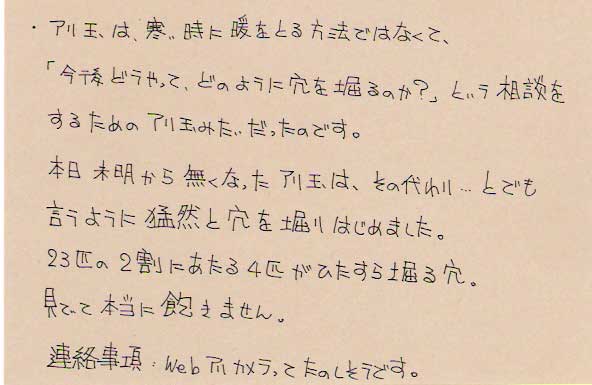 ・アリ玉、は、寒い時に暖をとる方法ではなくて、
「今後どうやって、どのように穴を掘るのか?」という相談を
するためのアリ玉みたいだったのです。
本日未明から無くなったアリ玉は、その代わり…とでも
言うように猛然と穴を掘りはじめました。
23匹の2割にあたる4匹がひたすら掘る穴。
見ていて本当に飽きません。
連絡事項:Webアリカメラってたのしそうです。